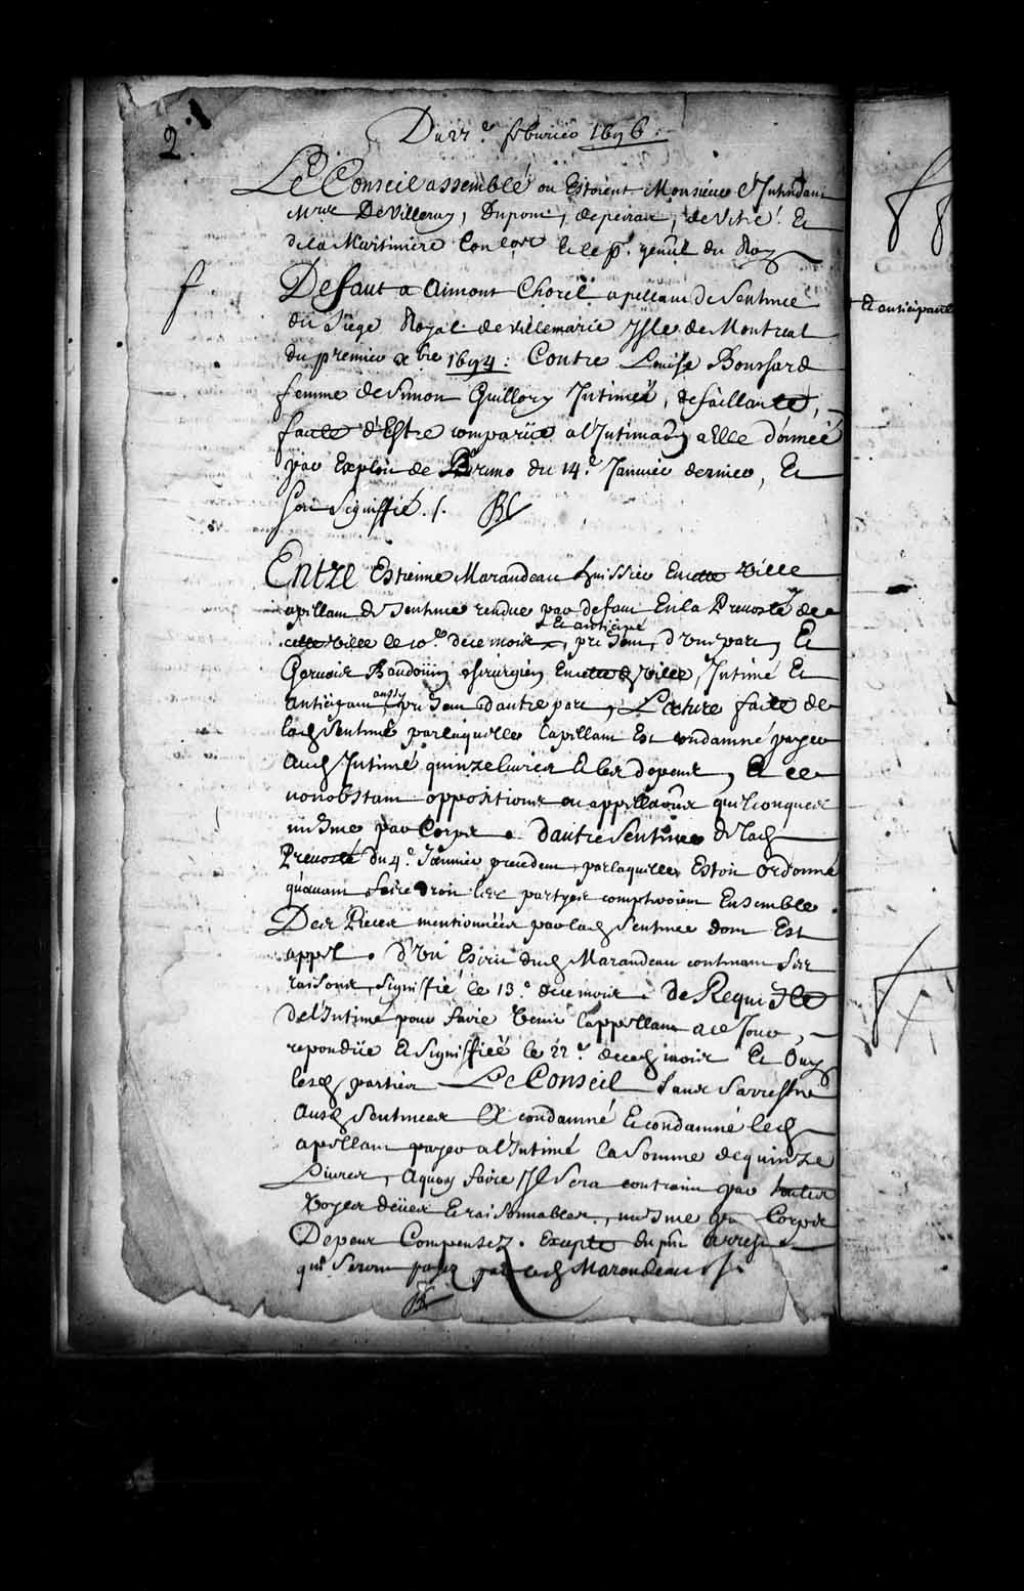 2.
Du 27e febvrier 1696.
Le Conseil assemblé ou Estoient Monsieur L'Intendant
Mres De Villeray, Dupont, depeiras, de Vitré Et
de la Martiniere Coners Et le pr. genal du Roy
Defaut a Aimont Chorel apellant de Sentence
du Siege Royal de villemarie Isle de Montreal
du premier xbre 1694: Contre Louise Boussard
femme de Simon Guillory Intimée, defaillante,
faute d'Estre comparüe a l'Intimaõn a Elle donnée
par Exploit de Pruno du 14e Janvier dernier, Et
soit Signiffié ./.
Entre Estienne Marandeau huissier En cette Ville
apellant de Sentence rendue par defaut En la Prevosté de
cette Ville le 10e de ce mois & anticipé, present, d'une part, Et
Gervais Baudoüin chirurgien En cette d. Ville, Intimé Et
anticipant aussy present d'autre part, Lecture faite de
lad. Sentence par laquelle l'apellant Est condamné payer
aud. Intimé quinze livres Et les depens, Et ce
nonobstant oppositions ou appellaõns quelconques
mesme par Corps. d'autre Sentence de lad.
Prevosté du 4e Janvier precedent, par laquelle Estoit Ordonné
qu'avant faire droit les partyes compteroient Ensemble
Des Pieces mentionnées par lad. Sentence dont Est
appel. d'Un Escrit dud. Marandeau contenant Ses
raisons, Signiffié le 13e de ce mois. de Requeste
de l'Intimé pour faire Venir l'appellant a ce Jour,
repondüe Et Signiffiée le 22e de ced. mois Et Ouy
lesd. parties Le Conseil Sans S'arrester
Ausd. Sentences A condamné Et condamne led.
apellant payer a l'Intimé la Somme de quinze
Livres, A quoy faire Il Sera contraint par toutes
Voyes deües Et raisonnables, mesme par Corps
Depens Compensez. Excepté du pñt Arrest
qui Seront payez par led. Marandeau ./.
Et anticipant